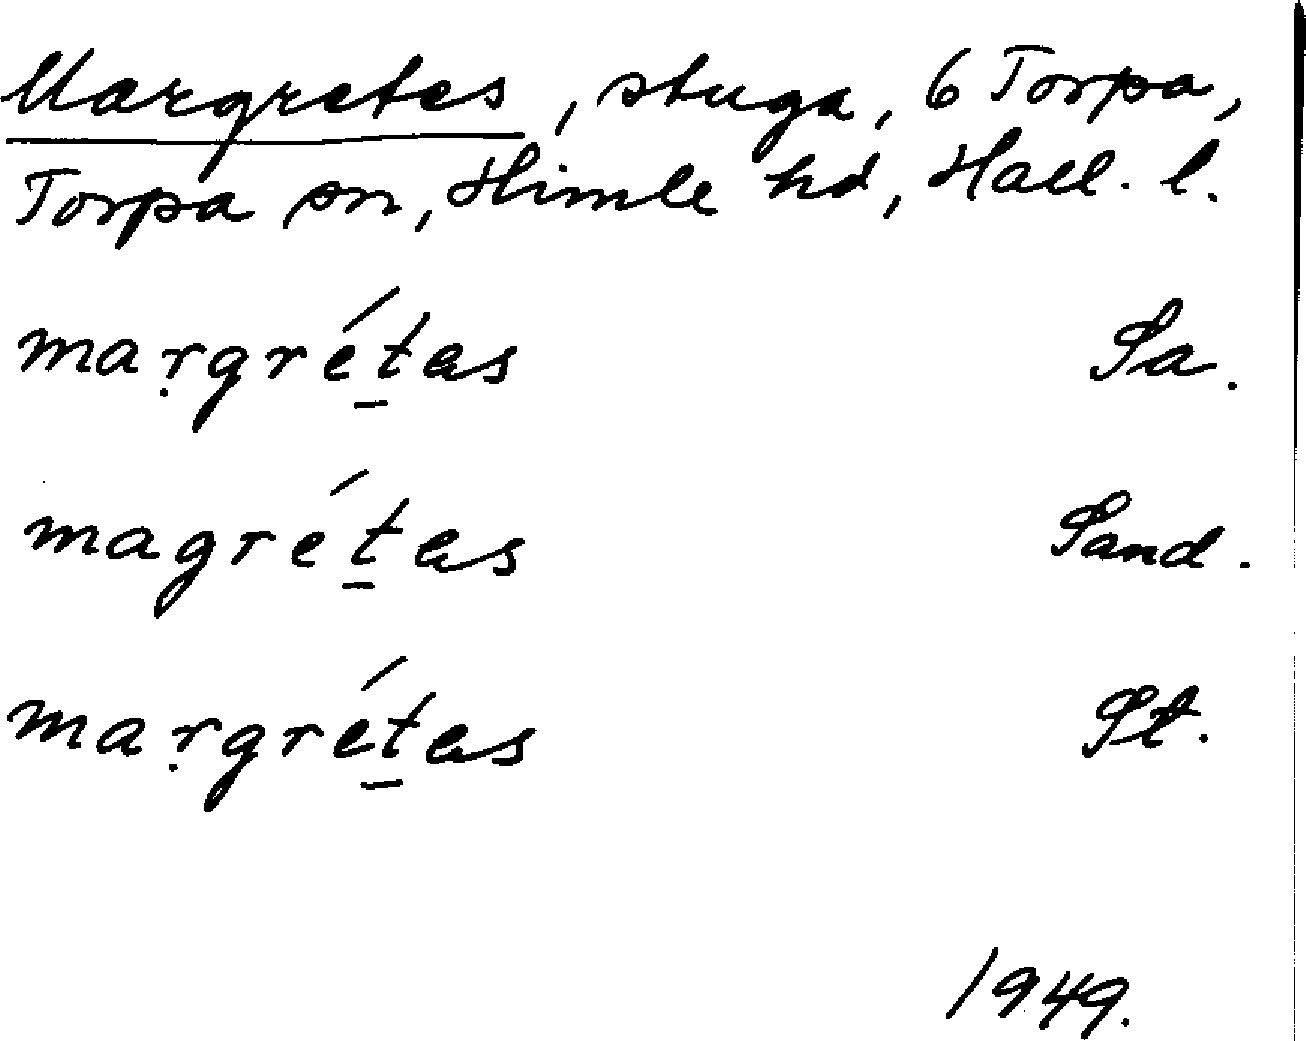 Margretas, stuga, 6 Torpa,
Torpa sn, Himle hd, Hall. l.
maṛgrét̲as Sa.
magrét̲as Sand.
maṛgrét̲as St.
1949.